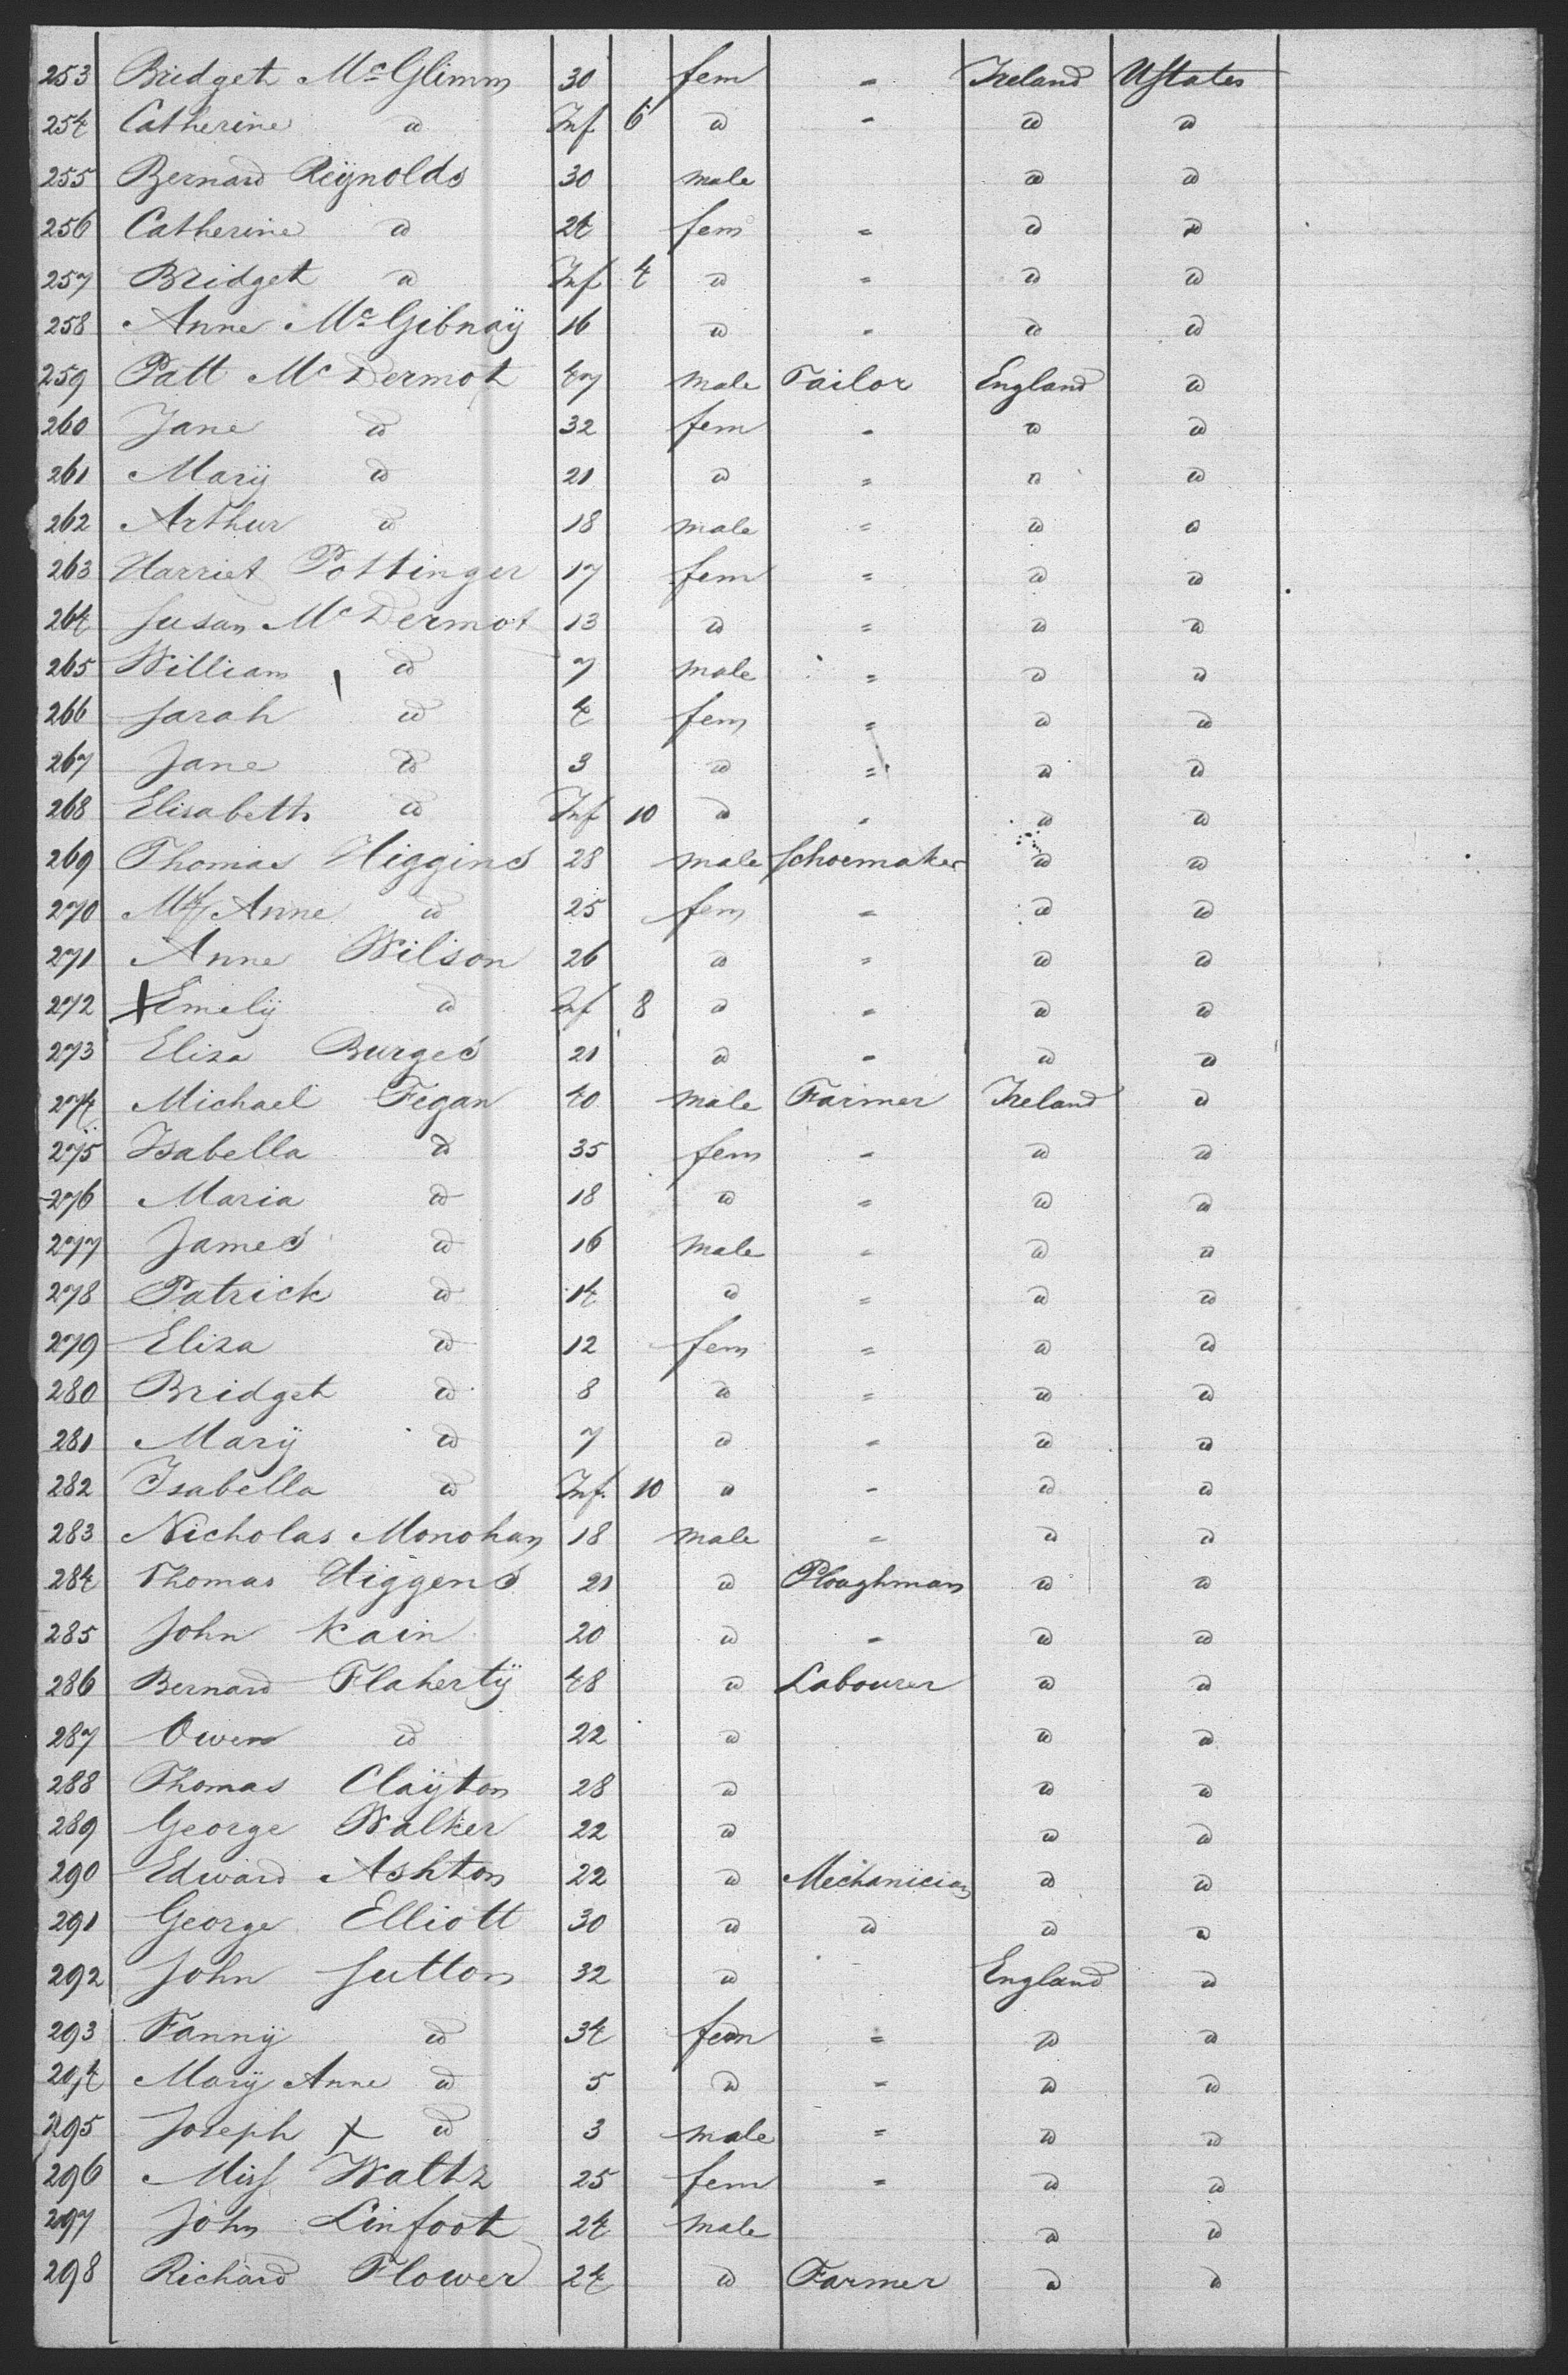 253 Bridget Mc Glimm 30 fem - Ireland UStates
254 Catherine d Inf 6 d - d d
255 Bernard Reÿnolds 30 male d d
256 Catherine d 24 fem = d d
257 Bridget d Inf 4 d = d d
258 Anne Mc Gibnaÿ 16 d - d d
259 Patt Mc Dermot 47 male Tailor England d
260 Jane d 32 fem - d d
261 Marÿ d 21 d = d d
262 Arthur d 18 male = d d
263 Harriet Pottinger 17 fem = d d
264 Susan Mc Dermot 13 d = d d
265 William d 7 male = d d
266 Sarah d 4 fem = d d
267 Jane d 3 d = d d
268 Elisabeth d Inf 10 d - d d
269 Thomas Higgins 28 male Schoemaker d d
270 My Anne d 25 fem = d d
271 Anne Wilson 26 d = d d
272 Emelÿ d Inf 8 d = d d
273 Eliza Burges 21 d - d d
274 Michael Fegan 40 male Farmer Ireland d
275 Isabella d 35 fem - d d
276 Maria d 18 d = d d
277 James d 16 male = d d
278 Patrick d 14 d = d d
279 Eliza d 12 fem = d d
280 Bridget d 8 d = d d
281 Marÿ d 7 d = d d
282 Isabella d Inf. 10 d - d d
283 Nicholas Monohan 18 male = d d
284 Thomas Higgens 21 d Ploughman d d
285 John Kain 20 d - d d
286 Bernard Flahertÿ 48 d Labourer d d
287 Owen d 22 d d d
288 Thomas Claÿton 28 d d d
289 George Walker 22 d d d
290 Edward Ashton 22 d Mechanician d d
291 George Elliott 30 d d d d
292 John Sutton 32 d England d
293 Fannÿ d 34 fem = d d
294 Marÿ Anne d 5 d = d d
295 Joseph d 3 male = d d
296 Miss Waltz 25 fem = d d
297 John Linfoot 24 male d d
298 Richard Flower 24 d Farmer d d